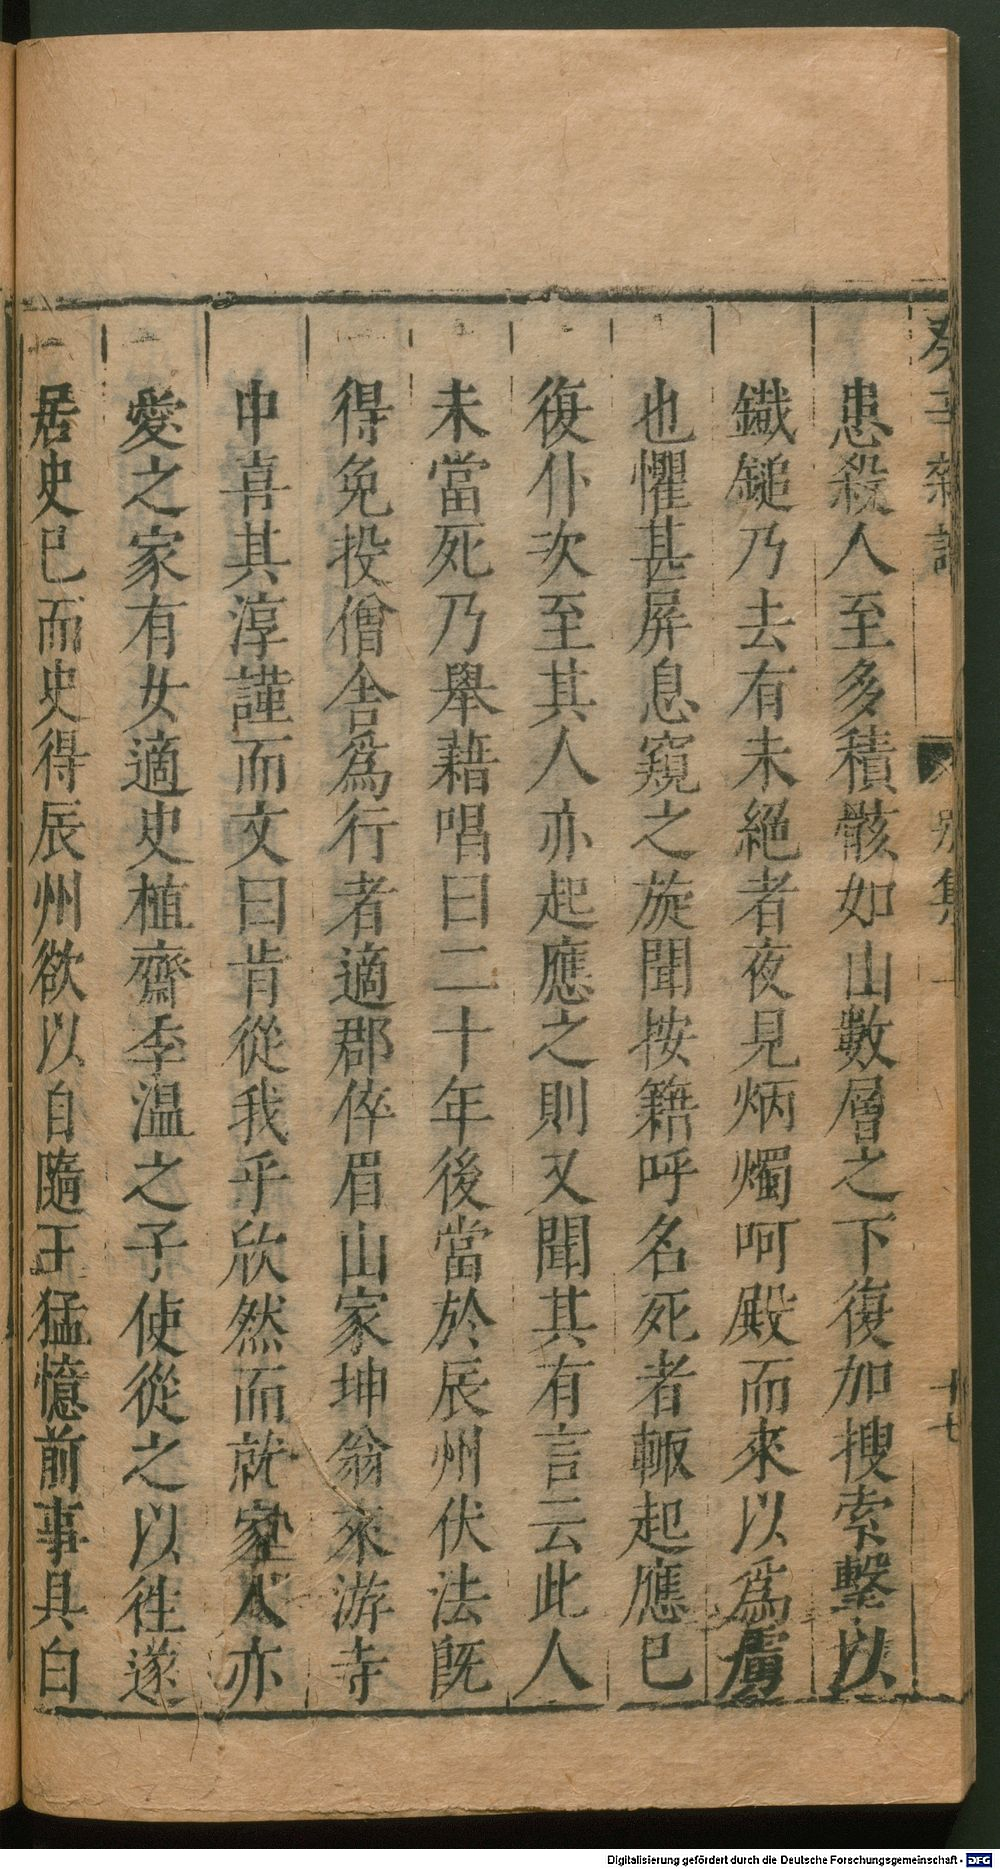 癸辛雜識 別集上 十七
患殺人至多積骸如山數層之下復加搜索繫以
鐵鎚乃去有未絕者夜見炳燭呵殿而來以爲虜
也懼甚屏息窺之旋聞按籍呼名死者輙起應已
復仆次至其人亦起應之則又聞其有言云此人
未當死乃舉藉唱曰二十年後當於辰州伏法旣
得免投僧舍爲行者適郡倅眉山家坤翁來游寺
中喜其淳謹而文曰肯從我乎欣然而就家人亦
愛之家有女適史植齋季温之子使從之以徃遂
居史巳而史得辰州欲以自隨王猛憶前事具白
Digitalisierung gefördert durch die Deutsche Forschungsgemeinschaft - DFG